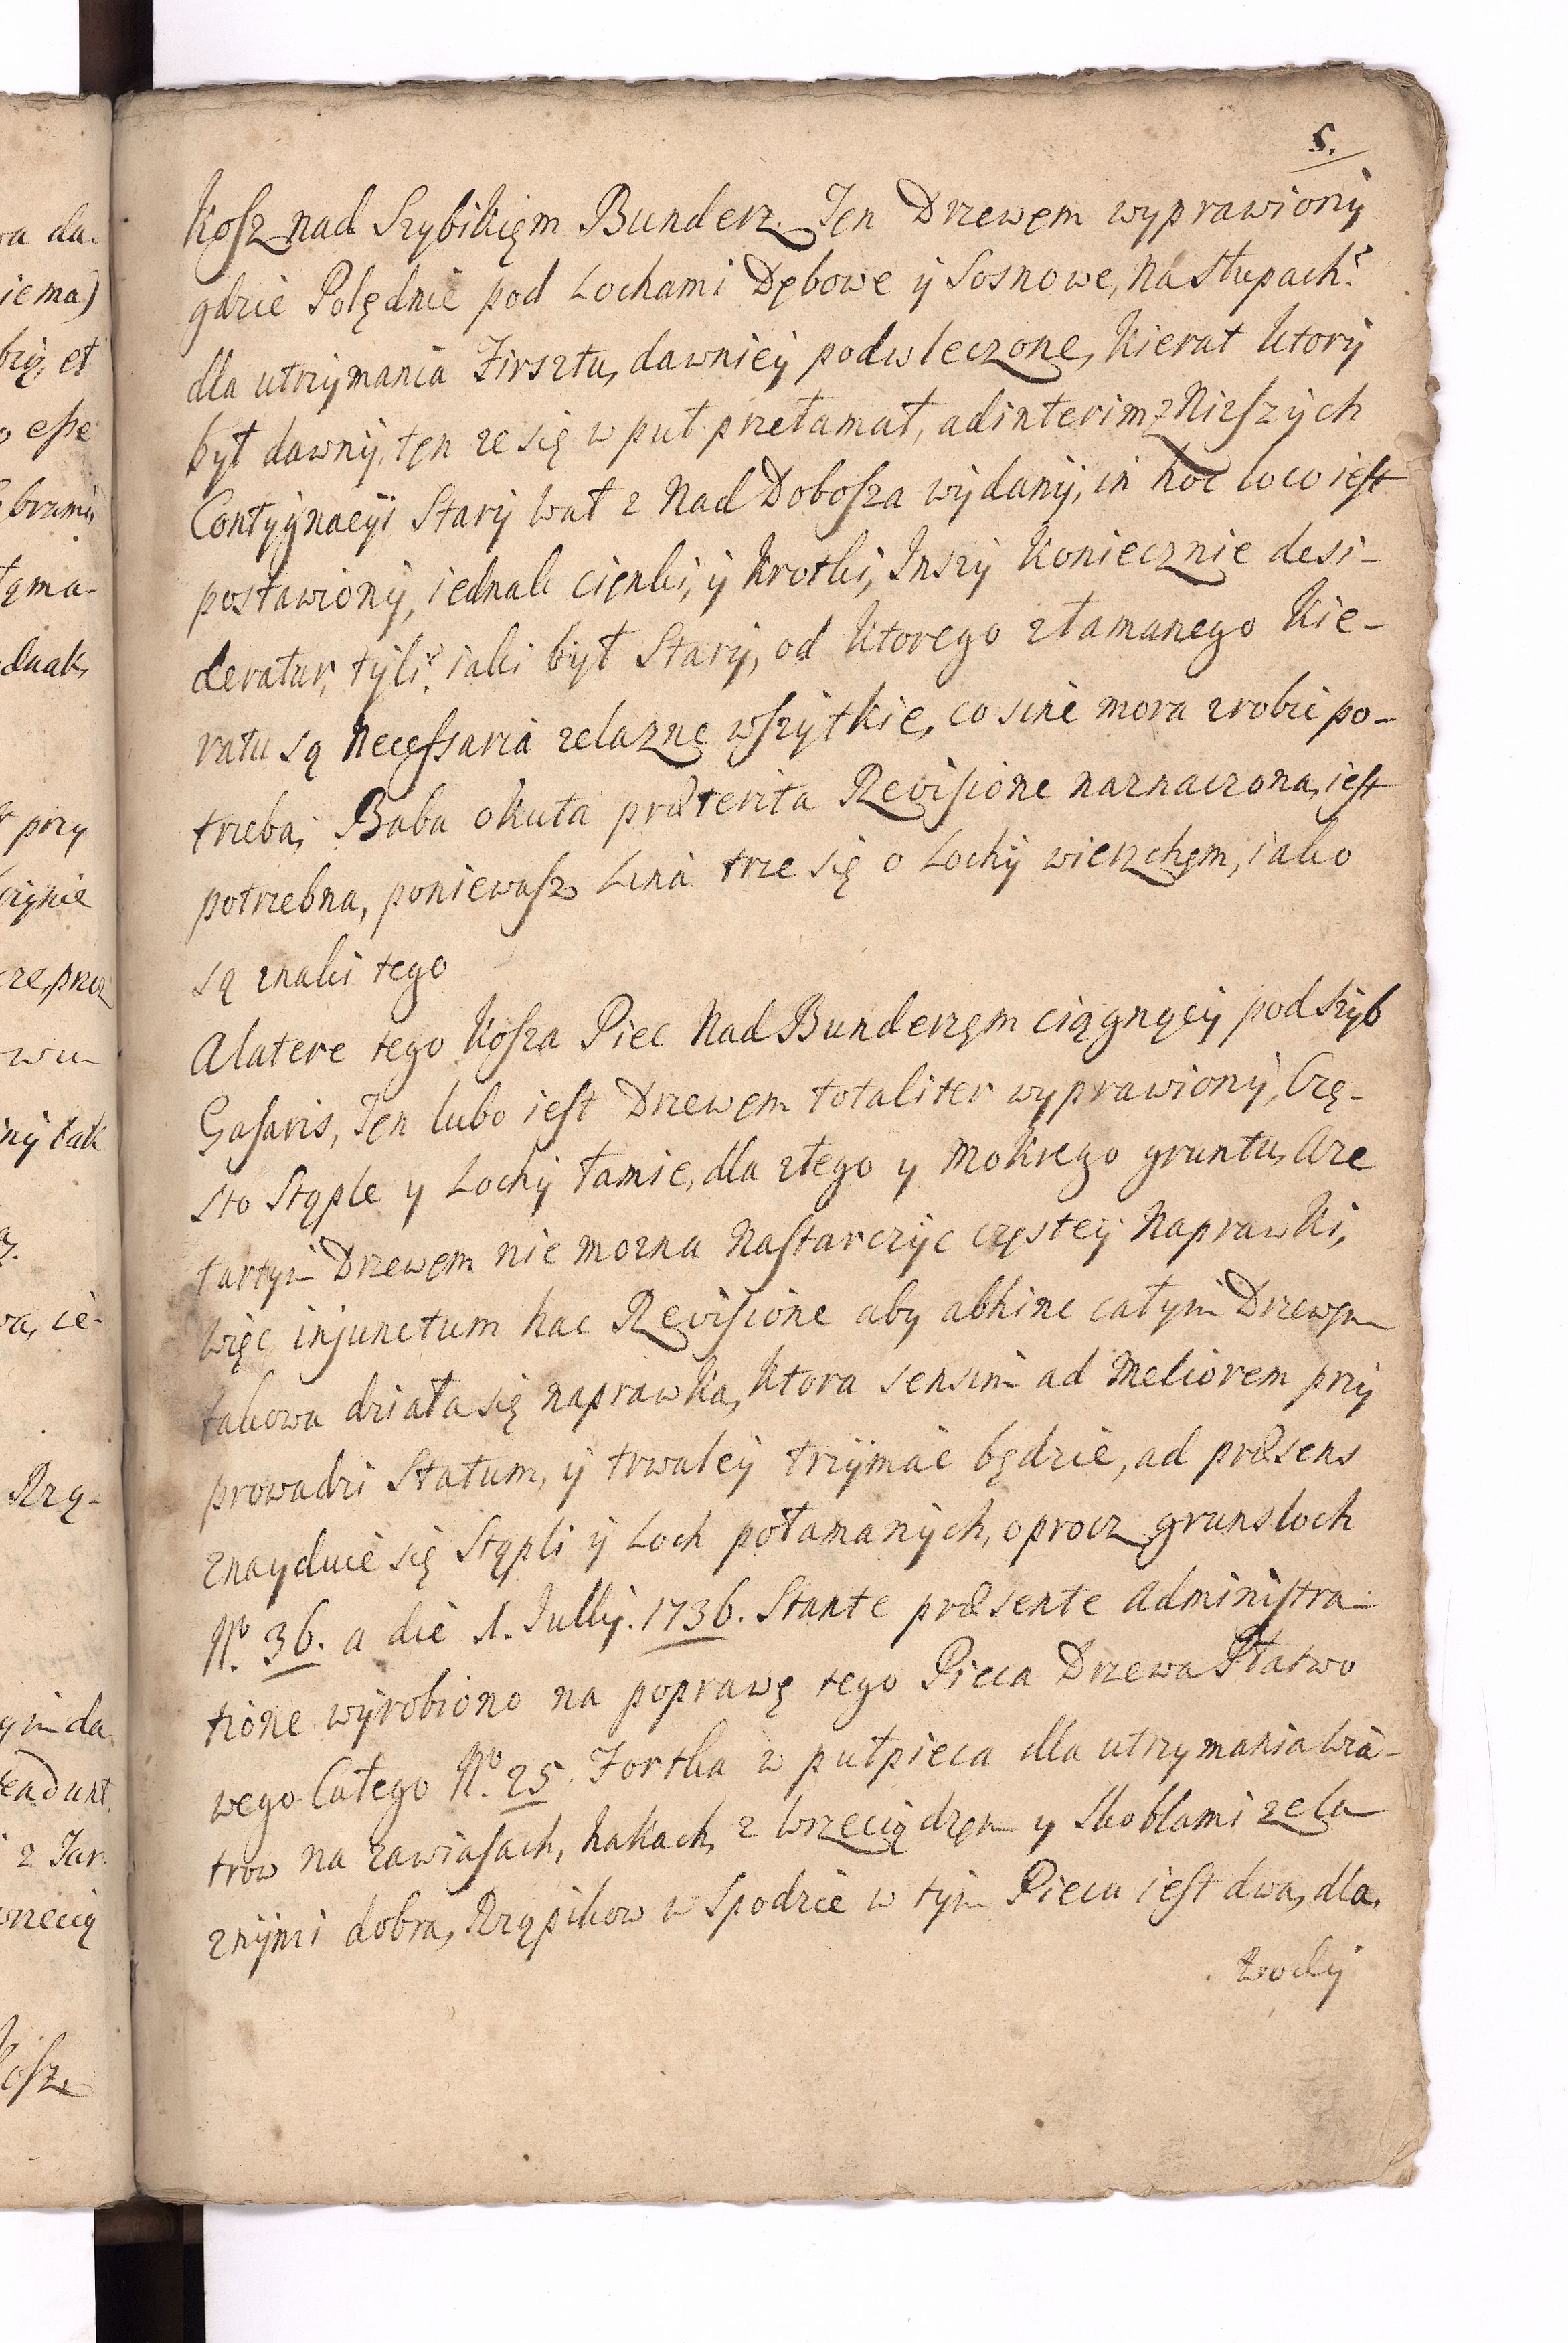 5.
Kosz nad Szybikięm Bunderz. Ten Drzewęm wyprawiony
gdzie Polędnie pod Lochami Dębowe y Sosnowe, na Słupach
dla utrzymania Firsztu, dawniey podwleczone, Kierat ktory
był dawny, tęn ze się w puł przełamał, ad interim z Nizszych
Contygnacyi Stary wał z Nad Dobosza wydany, in hoc loco iest
postawiony, iednak cięnki, y krotki, Inszy koniecznie desi-
deratur, tyli iaki był Stary, od ktorego złamanego Kie-
ratu są Necessaria zelazne wszytkie, co sine mora zrobic po-
trzeba, Baba okuta præterita Revisione naznaczona, iest
potrzebna, poniewasz Lina trze się o Lochy wierzchęm, iako
są znaki tego
A latere tego Kosza Piec Nad Bunderzęm ciągnący pod szyb
Gasaris, Ten lubo iest Drzewęm totaliter wyprawiony, Czę-
sto Stęple y Lochy łamie, dla złego y Mokrego gruntu, A ze
tartym Drzewęm nie mozna Nastarczyc częstey Naprawki,
więc injunctum hac Revisione aby abhinc całym Drzewęm
takowa działa się naprawka, ktora sensim ad Meliorem przy
prowadzi Statum, y trwaley trzymac będzie, ad præsens
znayduie się Stępli y Loch połamanych, oprocz grunsloch
No. 36. a die 1. Jullij. 1736. Stante præsente Administra-
tione wyrobiono na poprawę tego Pieca Drzewa Płatwo
wego Całego No. 25. Fortka w puł pieca dla utrzymania wia-
trow na zawiasach, hakach, z wrzeciądzęm y Skoblami zela
znymi dobra, Rząpikow w Spodzie w tym Piecu iest dwa, dla
wody